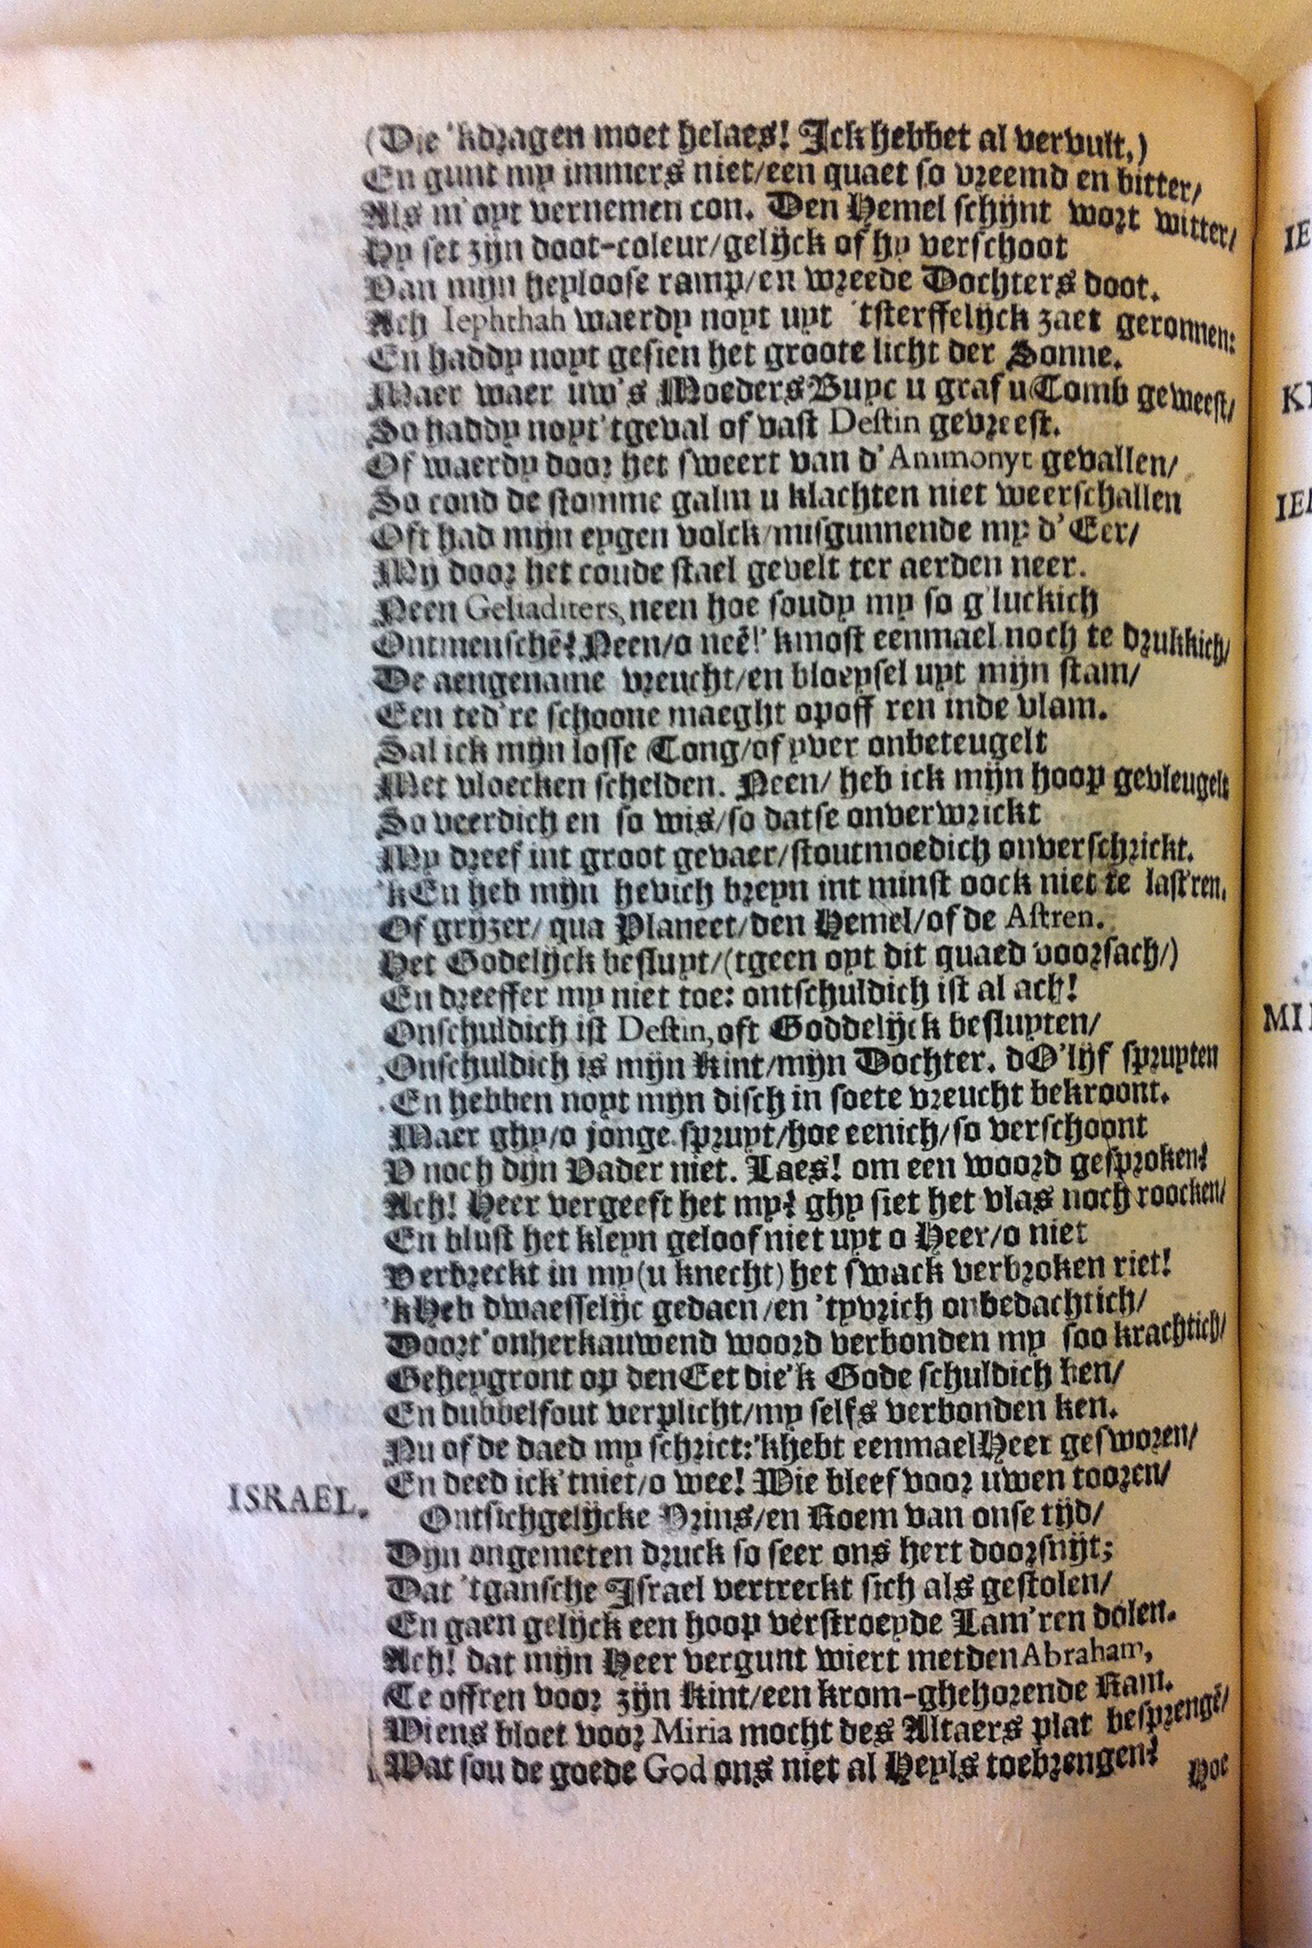 (Die 'kdragen moet helaes! Ick hebbet al vervult.)
En gunt my immers niet/een quaet so vreemd en bitter/
Als m'oyt vernemen con. Den Hemel schijnt wort witter/
Hy set zijn doot-coleur/gelijck of hy verschoot
Van mijn heyloose ramp/en wreede Dochters doot.
Ach Iephthah waerdy noyt uyt 'tsterffelijck zaet geronnen:
En haddy noyt gesien het groote licht der Sonne.
Maer waer uw's Moeders Buyc u graf u Tomb geweest/
So haddy noyt 'tgeval of vast Destin gevreest.
Of waerdy door het sweert van d'Ammonyt gevallen/
So cond de stomme galm u klachten niet weerschallen
Oft had mijn eygen volck/misgunnende my d'Eer/
Mij door het coude stael gevelt ter aerden neer.
Neen Geliaditers, neen hoe soudy my so g'luckich
Ontmenschē? Neen/o neē!'kmost eenmael noch te drukkich/
De aengename vreucht/en bloeysel uyt mijn stam/
Een ted're schoone maeght opoff'ren inde vlam.
Sal ick mijn losse Tong/of yver onbeteugelt
Met vloecken schelden. Neen/ heb ick mijn hoop gevleugelt
So veerdich en so wis/so datse onverwrickt
My dreef int groot gevaer/stoutmoedich onverschrickt.
'kEn heb mijn hevich breyn int minst oock niet te last'ren.
Of grijzer/ qua Planeet/den Hemel/of de Astren.
Het Godelijck besluyt/(tgeen oyt dit quaed voorsach/)
En dreeffer my niet toe: ontschuldich ist al ach!
Onschuldich ist Destin, oft Goddelijck besluyten/
Onschuldich is mijn Kint/mijn Dochter. dO'lijf spruyten
En hebben noyt mijn disch in soete vreucht bekroont.
Maer ghy/o jonge spruyt/hoe eenich/so verschoont
V noch dijn Vader niet. Laes! om een woord gesproken?
Ach! Heer vergeeft het my? ghy siet het vlas noch roocken/
En blust het kleyn geloof niet uyt o Heer/o niet
Verbreckt in my(u knecht)het swack verbroken riet!
'kHeb dwaesselijc gedaen/en 'tyvrich onbedachtich/
Doort'onherkauwend woord verbonden my soo krachtich/
Geheygront op den Eet die'k Gode schuldich ben/
En dubbelfout verplicht/my selfs verbonden ken.
Nu of de daed my schrict:'khebt eenmael Heer gesworen/
En deed ick'tniet/o wee! Wie bleef voor uwen tooren/
ISRAEL. Ontsichgelijcke Prins/en Roem van onse tijd/
Dijn ongemeten druck so seer ons hert doorsnijt;
Dat 'tgansche Israel vertreckt sich als gestolen/
En gaen gelijck een hoop verstroeyde Lam'ren dolen.
Ach! dat mijn Heer vergunt wiert met den Abraham,
Te offren voor zijn Kint/een krom-ghehorende Ram.
Wiens bloet voor Miria mocht des Altaers plat besprengē/
Wat sou de goede God ons niet al Heyls toebrengen?
Hoe
IE
KI
IEI
MI